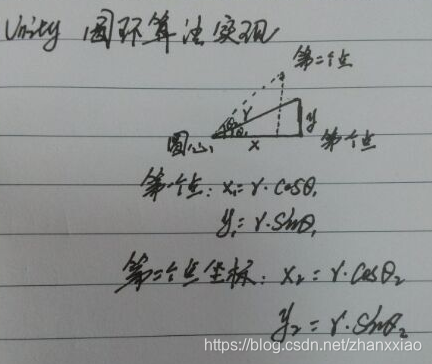 Unity 圆环算法实现
第二个点
r
θ₂ θ₁
y
圆心
x
第一个点
第一个点: x₁=r·cosθ₁
y₁=r·sinθ₁
第二个点坐标: x₂=r·cosθ₂
y₂=r·sinθ₂
https://blog.csdn.net/zhanxxiao